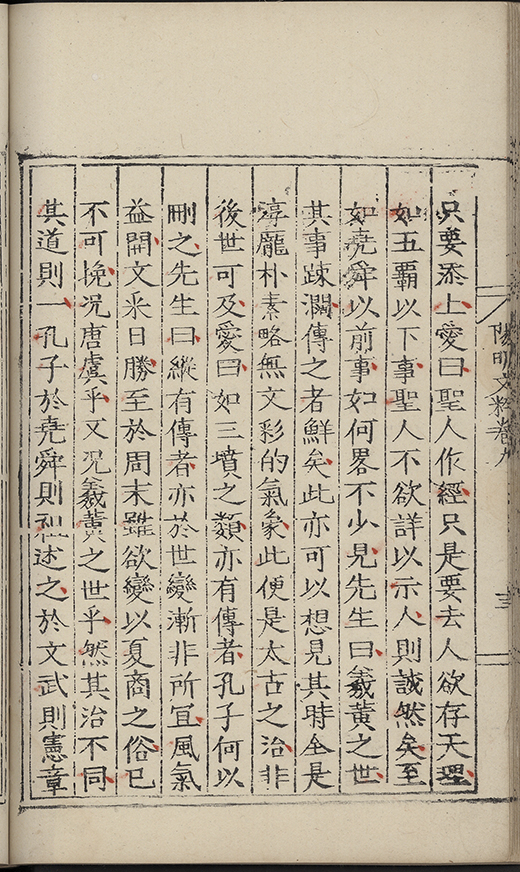 只要添上愛曰聖人作經只是要去人欲存天理
如五覇以下事聖人不欲詳以示人則誠然矣至
如堯舜以前事如何畧不少見先生曰羲黃之世
其事踈濶傳之者鮮矣此亦可以想見其時全是
淳龐朴素略無文彩的氣象此便是太古之治非
後世可及愛曰如三墳之類亦有傳者孔子何以
刪之先生曰縱有傳者亦於世變漸非所冝風氣
益開文采日勝至於周末雖欲變以夏商之俗已
不可挽况唐虞乎又况羲黃之世乎然其治不同
其道則一孔子於堯舜則祖述之於文武則憲章
陽明文粹卷九
十三